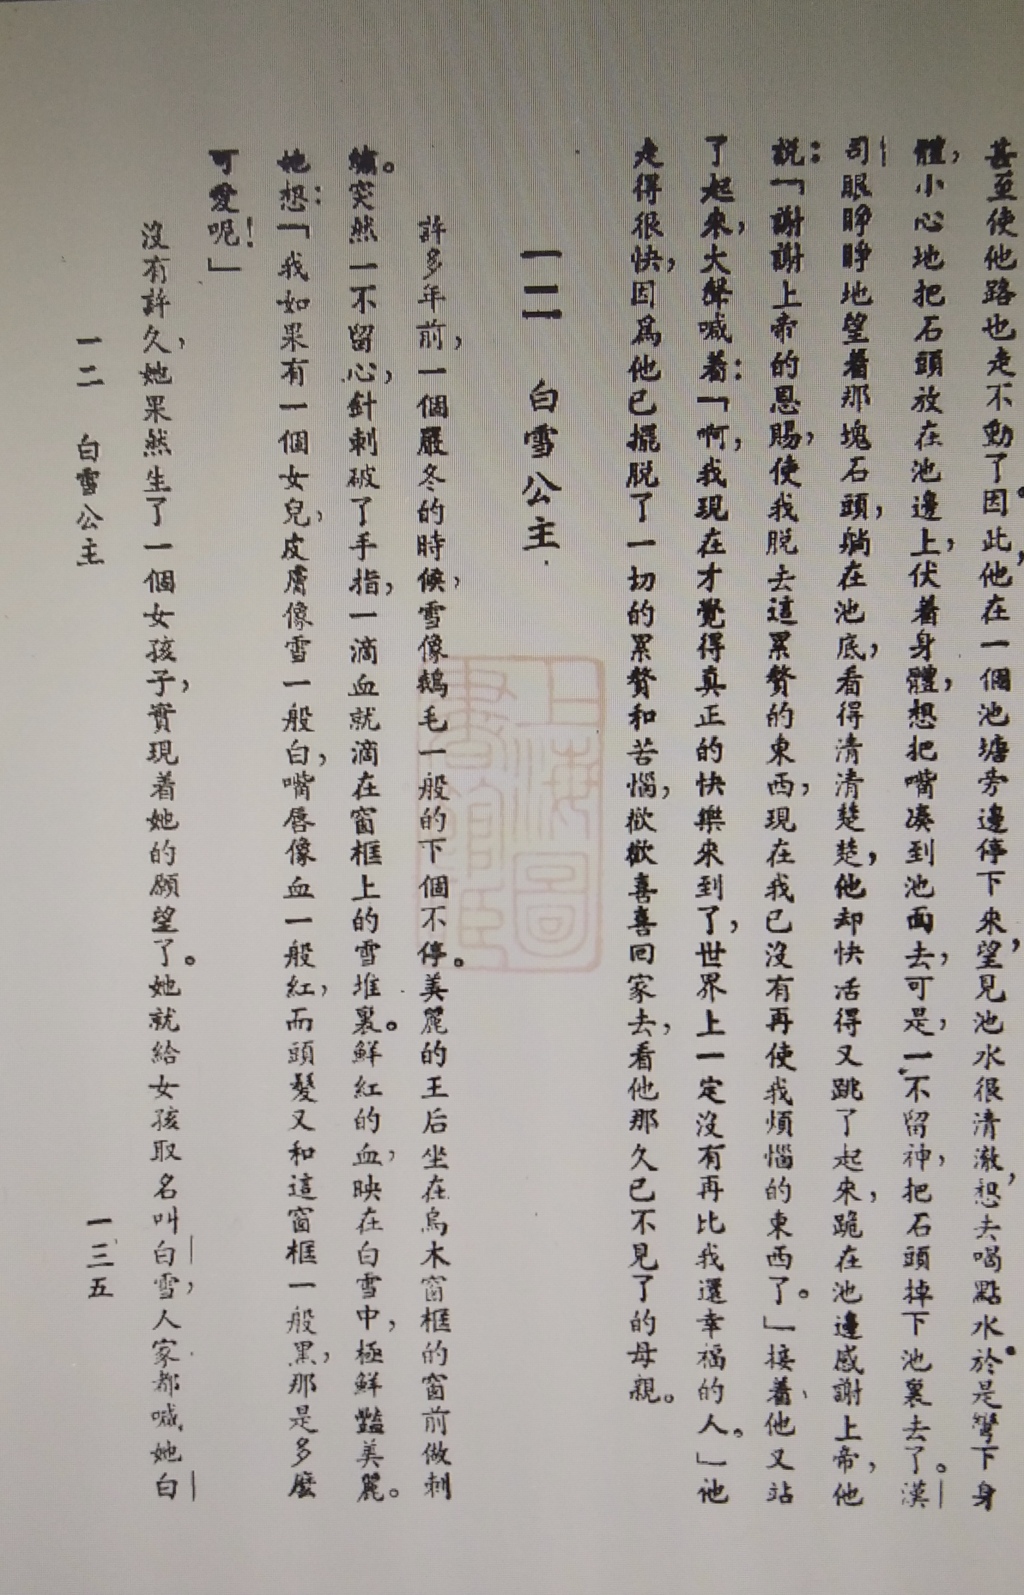 甚至使他路也走不動了。因此，他在一個池塘旁邊停下來，望見池水很清澈，想去喝點水。於是彎下身
體，小心地把石頭放在池邊上，伏着身體，想把嘴凑到池面去，可是，一不留神，把石頭掉下池裏去了。漢
司眼睜睜地望着那塊石頭，躺在池底，看得清清楚楚，他却快活得又跳了起來，跪在池邊感謝上帝，他
説：「謝謝上帝的恩賜，使我脫去這累贅的東西，現在我已沒有再使我煩惱的東西了。」接着，他又站
了起來，大聲喊着：「啊，我現在才覺得真正的快樂來到了，世界上一定沒有再比我還幸福的人。」他
走得很快，因爲他已擺脫了一切的累贅和苦惱，歡歡喜喜回家去，看他那久已不見了的母親。
一二 白雪公主
許多年前，一個嚴冬的時候，雪像鵝毛一般的下個不停。美麗的王后坐在烏木窗框的窗前做刺
繡。突然一不留心，針刺破了手指，一滴血就滴在窗框上的雪堆裏。鮮紅的血，映在白雪中，極鮮豔美麗。
她想：「我如果有一個女兒，皮膚像雪一般白，嘴唇像血一般紅，而頭髮又和這窗框一般黑，那是多麼
可愛呢！」
沒有許久，她果然生了一個女孩子，實現着她的願望了。她就給女孩取名叫白雪，人家都喊她白
一二 白雪公主
一三五
上海圖
書館藏